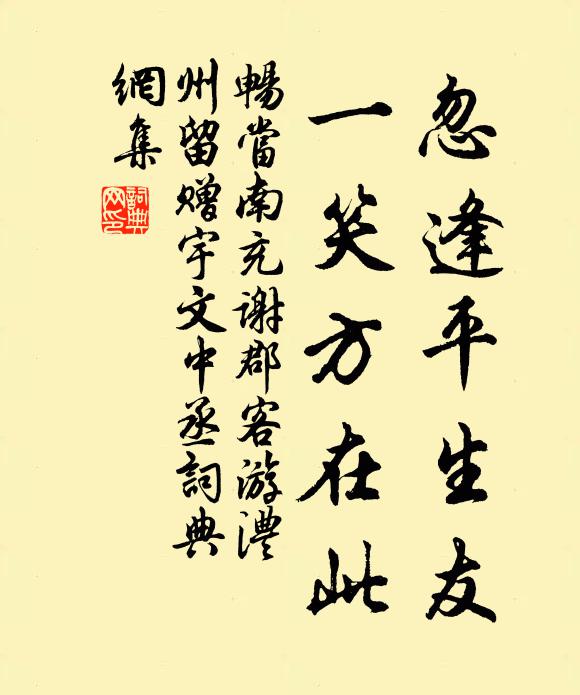 忽逢平生友
一笑方在此
暢當南充謝郡客游澧
州留贈宇文中丞詞典
網集
詞典
网印